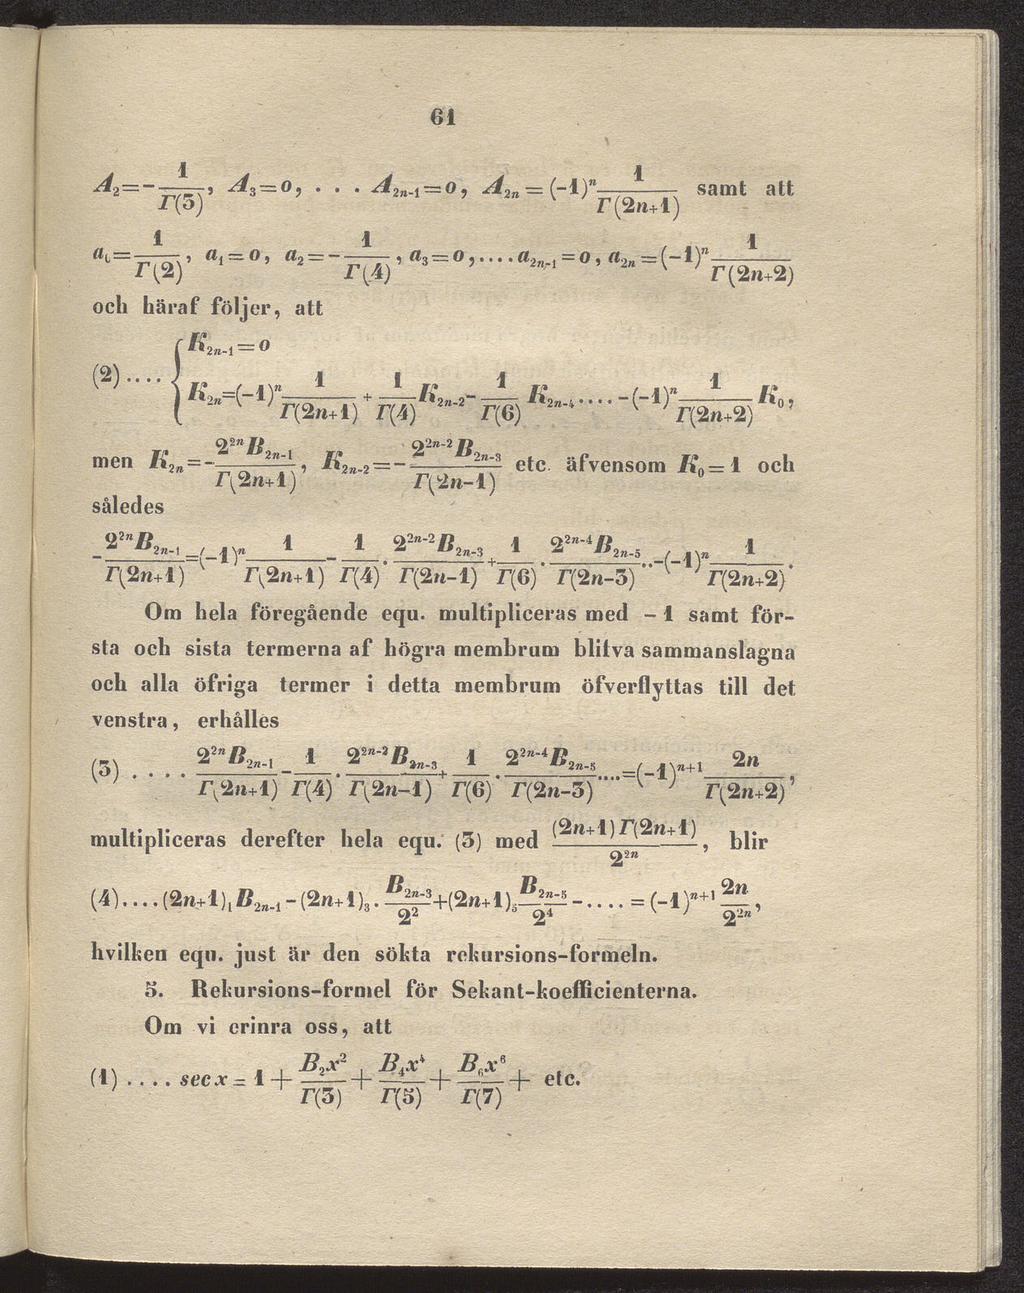 61
A₂=-1/Γ(3), A₃=0, . . . A₂ₙ₋₁=0, A₂ₙ=(-1)ⁿ 1/Γ(2n+1) samt att
a₀=1/Γ(2), a₁=0, a₂=-1/Γ(4), a₃=0,....a₂ₙ₋₁=0, a₂ₙ=(-1)ⁿ 1/Γ(2n+2)
och häraf följer, att
(2).... { K₂ₙ₋₁=0
K₂ₙ=(-1)ⁿ 1/Γ(2n+1) + 1/Γ(4) K₂ₙ₋₂ - 1/Γ(6) K₂ₙ₋₄....-(-1)ⁿ 1/Γ(2n+2) K₀,
men K₂ₙ=-2²ⁿB₂ₙ₋₁/Γ(2n+1), K₂ₙ₋₂=-2²ⁿ⁻²B₂ₙ₋₃/Γ(2n-1) etc. äfvensom K₀=1 och
således
-2²ⁿB₂ₙ₋₁/Γ(2n+1)=(-1)ⁿ 1/Γ(2n+1) - 1/Γ(4) . 2²ⁿ⁻²B₂ₙ₋₃/Γ(2n-1) + 1/Γ(6) . 2²ⁿ⁻⁴B₂ₙ₋₅/Γ(2n-3)..-(-1)ⁿ 1/Γ(2n+2).
Om hela föregående equ. multipliceras med -1 samt för-
sta och sista termerna af högra membrum blifva sammanslagna
och alla öfriga termer i detta membrum öfverflyttas till det
venstra, erhålles
(3) .... 2²ⁿB₂ₙ₋₁/Γ(2n+1) - 1/Γ(4) . 2²ⁿ⁻²B₂ₙ₋₃/Γ(2n-1) + 1/Γ(6) . 2²ⁿ⁻⁴B₂ₙ₋₅/Γ(2n-3)....=(-1)ⁿ⁺¹ 2n/Γ(2n+2),
multipliceras derefter hela equ. (3) med (2n+1)Γ(2n+1)/2²ⁿ, blir
(4)....(2n+1)₁B₂ₙ₋₁-(2n+1)₃.B₂ₙ₋₃/2²+(2n+1)₅B₂ₙ₋₅/2⁴-....=(-1)ⁿ⁺¹ 2n/2²ⁿ,
hvilken equ. just är den sökta rekursions-formeln.
5. Rekursions-formel för Sekant-koefficienterna.
Om vi erinra oss, att
(1) .... sec x = 1 + B₂x²/Γ(3) + B₄x⁴/Γ(5) + B₆x⁶/Γ(7) + etc.